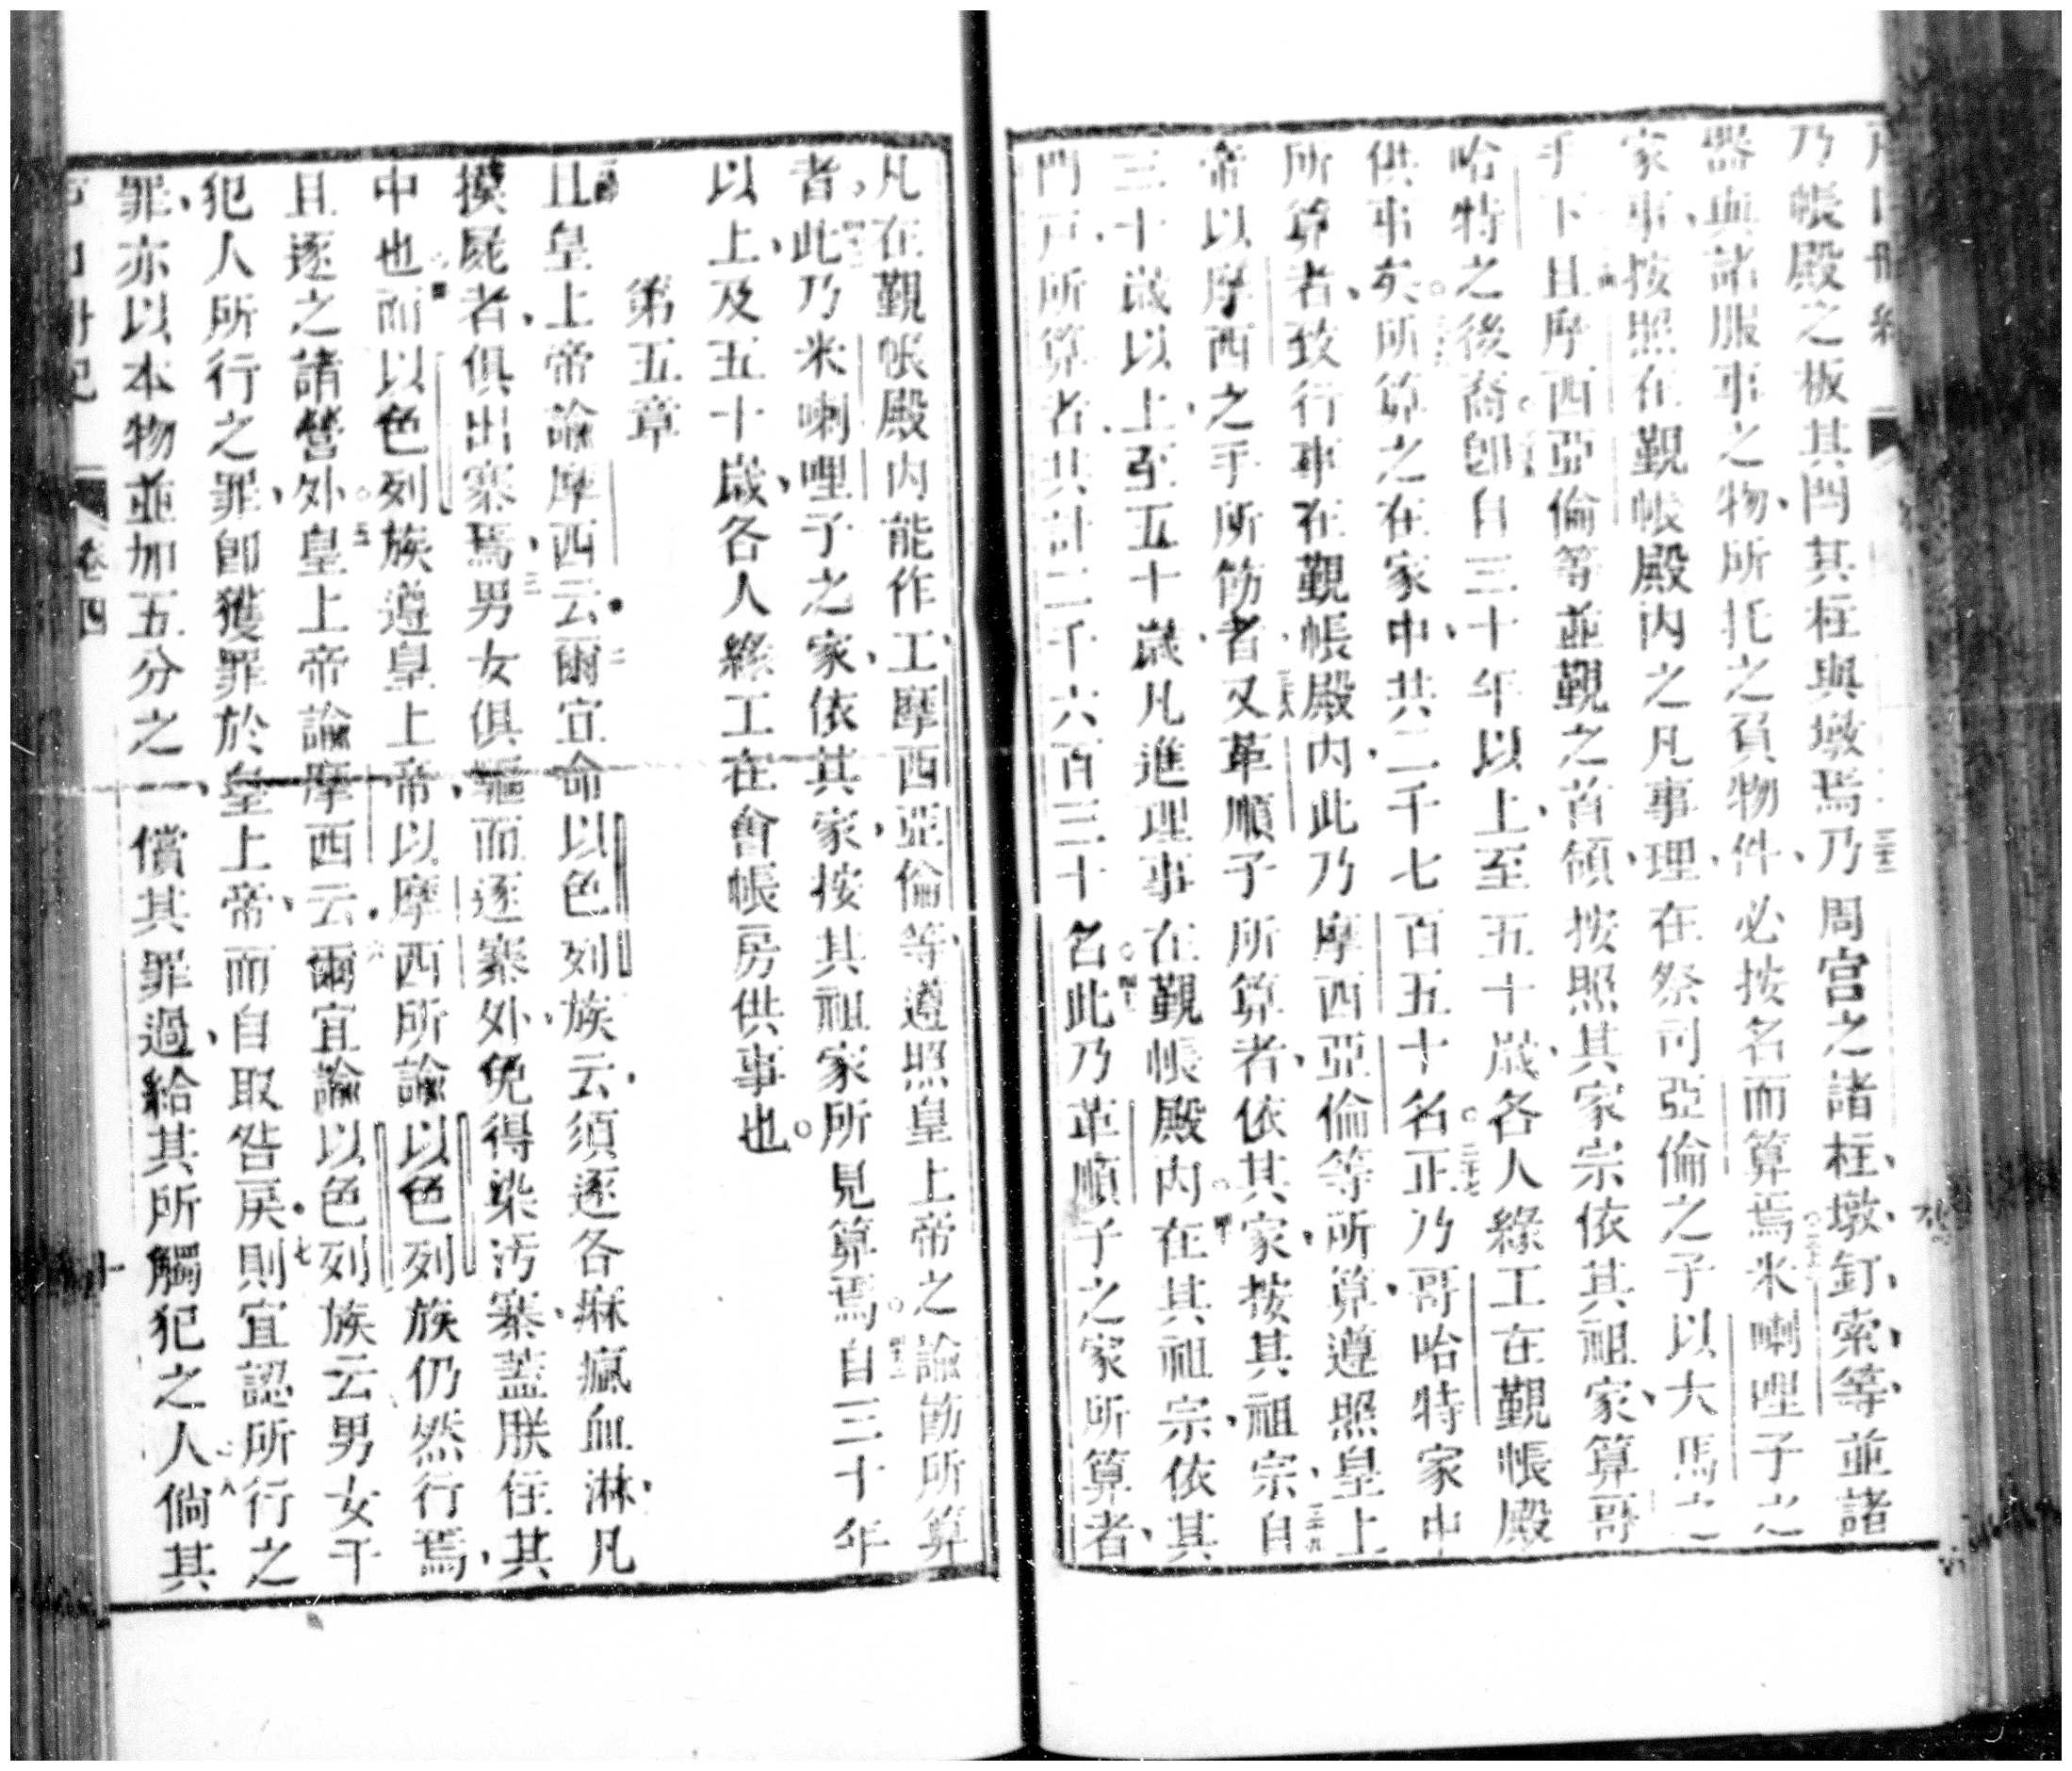 乃帳殿之板其閂其柱與墩焉乃周宮之諸柱墩釘索等並諸
器與諸服事之物所托之負物件必按名而算焉米喇哩子之
家事按照在覲帳殿內之凡事理在祭司亞倫之子以大馬之
手下且摩西亞倫等並覲之首領按照其家宗依其祖家算哥
哈特之後裔卽自三十年以上至五十歲各人緣工在覲帳殿
供事矣所算之在家中共二千七百五十名正乃哥哈特家中
所算者致行事在覲帳殿內此乃摩西亞倫等所算遵照皇上
帝以摩西之手所筋者又革順子所算者依其家按其祖宗自
三十歲以上至五十歲凡進理事在覲帳殿內在其祖宗依其
門戶所算者共計二千六百三十名此乃革順子之家所算者
凡在覲帳殿內能作工摩西亞倫等遵照皇上帝之諭筋所算
者此乃米喇哩子之家依其家按其祖家所見算焉自三十年
以上及五十歲各人緣工在會帳房供事也
第五章
且皇上帝諭摩西云爾宜命以色列族云須逐各痳瘋血淋凡
摸屍者俱出寨焉男女俱驅而逐寨外免得染汚寨蓋朕住其
中也而以色列族遵皇上帝以摩西所諭以色列族仍然行焉
且逐之諸營外皇上帝諭摩西云爾宜諭以色列族云男女干
犯人所行之罪卽獲罪於皇上帝而自取咎戾則宜認所行之
罪亦以本物並加五分之一償其罪過給其所觸犯之人倘其
卷四